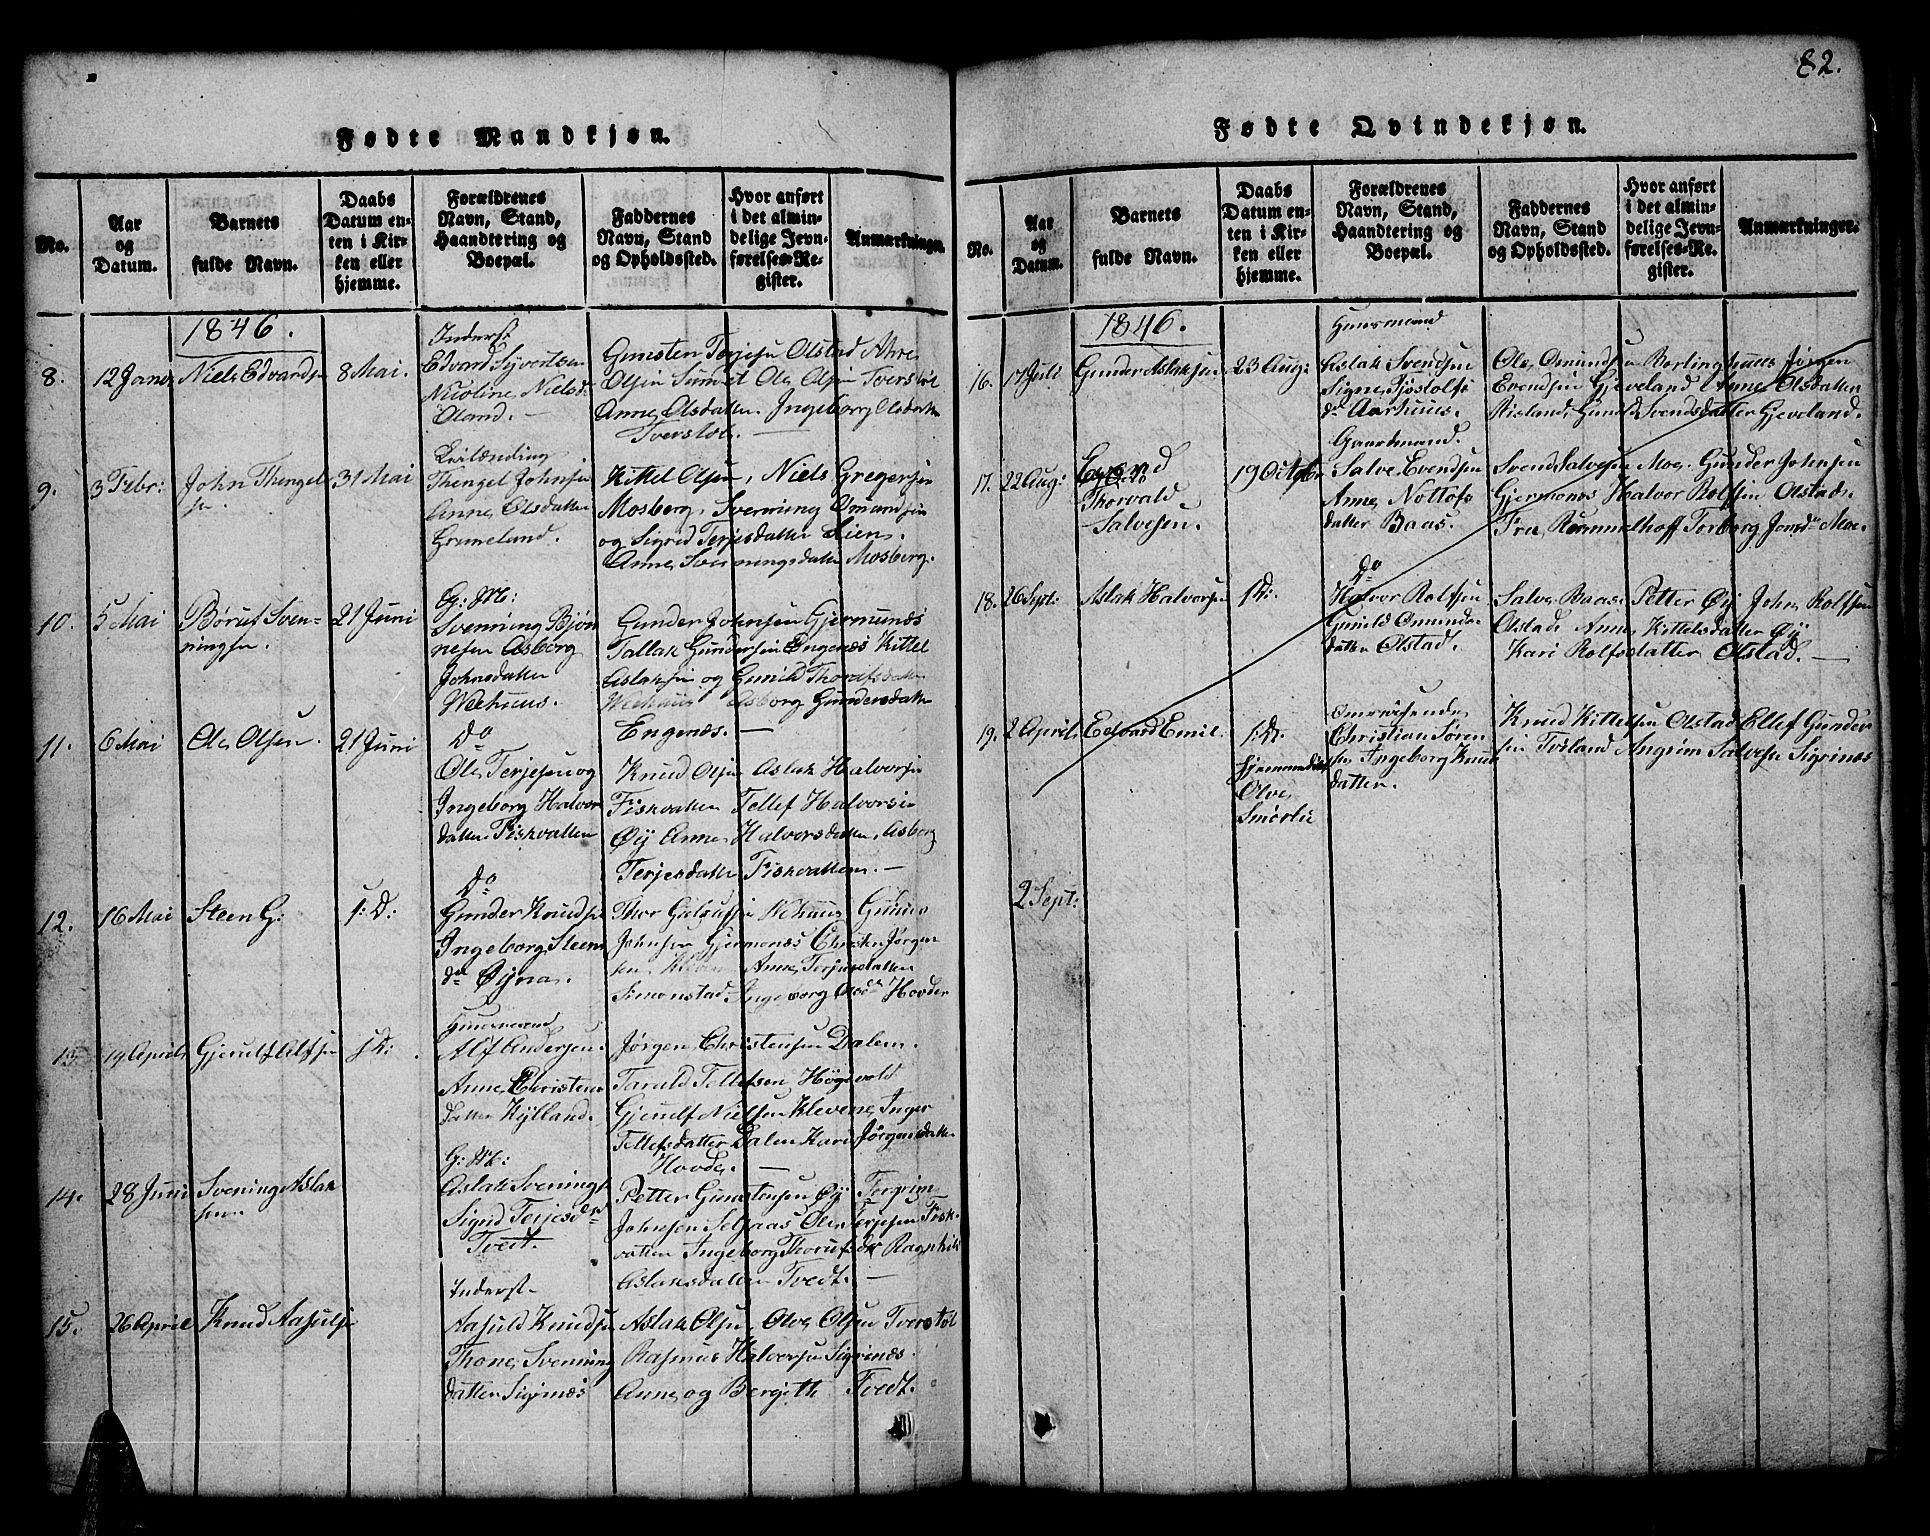 82.
Fødte Mandkjøn.
No.
Aar
og
Datum.
Barnets
fulde Navn.
Daabs
Datum en-
ten i Kir-
ken eller
hjemme.
Forældrenes
Navn, Stand,
Haandtering og
Boepæl.
Faddernes
Navn, Stand
og Opholdssted.
Hvor anført
i det almin-
delige Jevn-
førelses-Re-
gister.
Anmærkninger.
1846.
8.
12 Janr
Niels Edvardsen
8 Mai.
Inderst
Edvard Syvertsen
Nicoline Niels
Øland. —
Gunsten Terjesen Olstad
Olsen Ole Olsen Tverstøl
Anne Olsdatter Ingeborg Olsdatter
Tverstøl. —
9.
3 Febr:
John Thengel
sen.
31 Mai
Thengel Johnsen
Anne Olsdatter
Grimeland.
Kittel Olsen, Niels Gregersen
Mosberg, Svenning Omundsen
og Sigrid Terjesdatter Lien.
Anne Svenningsdatter Mosberg.
10.
5 Mai
Børuf Sven-
ningsen.
21 Juni
G: M:
Svenning Bjøn
nesen Asborg
Johnsdatter
Wehuus.
Gunder Johnsen Gjermunds
Tallak Gundersen Engenæs Kittel
Aslaksen og Gunild
Wehuus Asborg Gundersdatter
Engenæs. —
11.
6 Mai
Ole Olsen.
21 Juni
Do
Ole Terjesen og
Ingeborg Halvor
datter Fiskvatten
Knud Olsen Aslak Halvorsen
Fiskvatten Tellef Halvorsen
Øij Anne Halvorsdatter, Asborg
Terjesdatter Fiskvatten. —
12.
16 Mai
Steen G:
1: D:
Do
Gunder Knudsen
Ingeborg Steen
dr Øijna.
Thor Wehuus
Johnsen Gjermonæs Christen Jørgen
sen Kleven Anne Terjesdatter
Simonstad, Ingeborg Hovder
13
19 April
Gjerulf Alfsen
1 D:
Huusmand
Alf Andersen
Anne Christens
datter Kylland.
Jørgen Christensen Dalem.
Taruld Tellefsen Høgevold
Gjerulf Nielsen Klevene, Inger
Tellefsdatter Dalen Kari Jørgensdatter
Hovde. —
14.
28 Juni
Svening Aslak
sen.
G: M:
Aslak Svenings
Sigrid Terjesdr
Tvedt.
Petter Gunstensen Øij Torgrim
Johnsen Selaas Ole Terjesen Fisk-
vatten Ingeborg dr Ragnhild
Aslaksdatter Tvedt. —
15.
26 April
Knud Aasulsen
Inderst
Aasuld Knudsen
Thone Svenning
datter Sigrinæs
Aslak Olsen, Olve Olsen Tverstøl
Rasmus Halvorsen Sigrinæs.
Anne og Bergith Tvedt.
Fødte Qvindekjøn.
No.
Aar
og
Datum.
Barnets
fulde Navn.
Daabs
Datum en-
ten i Kir-
ken eller
hjemme.
Forældrenes
Navn, Stand,
Haandtering og
Boepæl.
Faddernes
Navn, Stand
og Opholdssted.
Hvor anført
i det almin-
delige Jevn-
førelses-Re-
gister.
Anmærkninger.
1846.
16.
17 Juli
Gunder Aslaksen
23 Aug:
Huusmand
Aslak Svendsen
Signe Tjøstolfs
dr Aarhuus.
Ole Omundsen Berlinghuus Jørgen
Evendsen Gjeveland Anne Olsdatter
Risland, Gunild Svendsdatter Gjeveland.
17.
22 Aug:
Thorvald
Salvesen.
19 October
Gaardmand.
Salve Evendsen
Anne Nottofs
datter Baas.
Svend Salvesen Moe. Gunder Johnsen
Gjermonæs Halvor Rolfsen Olstad.
Fru Rummelhoff Torborg Jonsdr Moe.
18.
26 Sept:
Aslak Halvorsen
1 D:
Do
Halvor Rolfsen
Gunild Omunds
datter Olstad.
Salve Baas Petter Øij John Rolfsen
Olstad Anne Kittelsdatter Øij
Kari Rolfsdatter Olstad. —
19.
2 April.
Edvard Emil.
1: D.
hjemmedøbt
Olve
Smørlie
Omreisende
Christian Søren
sen Ingeborg Knuds
datter.
Knud Kittelsen Olstad Ellef Gunder
sen Tveland Angrim Salvesen Sigrinæs
2 Sept: